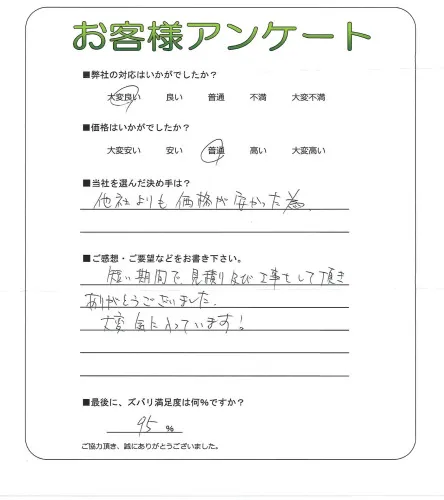 お客様アンケート
■弊社の対応はいかがでしたか？
大変良い 良い 普通 不満 大変不満
■価格はいかがでしたか？
大変安い 安い 普通 高い 大変高い
■当社を選んだ決め手は？
他社よりも価格が安かった為
■ご感想・ご要望などをお書き下さい。
短い期間で、見積り及び工事をして頂き
ありがとうございました。
大変気に入っています！
■最後に、ズバリ満足度は何％ですか？
95 ％
ご協力頂き、誠にありがとうございました。